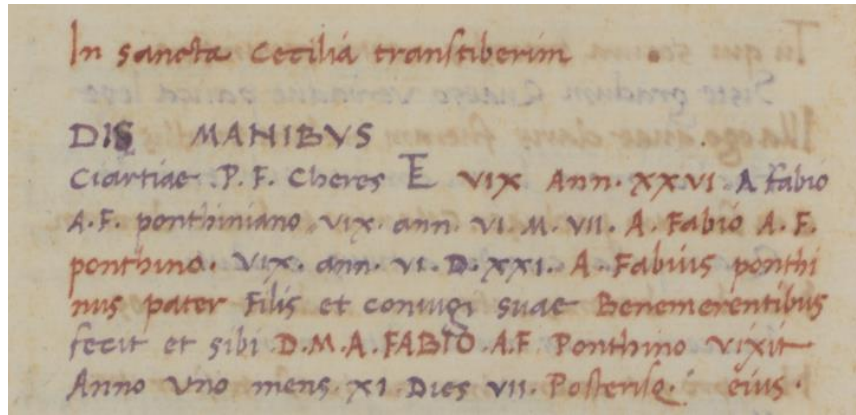 In sancta Cecilia transtiberim
DIS MANIBVS
Ciartiae . P. F. Cheres E vix Ann. XXVI. A fabio
A. F. ponthiniano vix. ann. vi. M. vii. A. Fabio A. F.
ponthino. vix. ann. vi. D. XXI. A. Fabius ponthi
nus pater Filis et coniugi suae Benemerentibus
fecit et sibi D. M. A. FABIO . A. F Ponthino vixit
Anno uno mens. xi. Dies vii. eius.